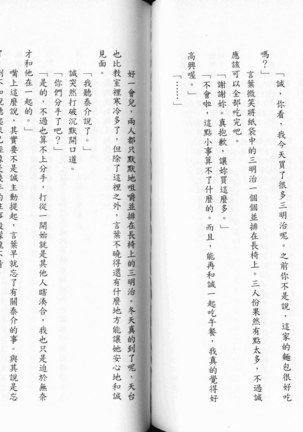 「誠，你看，我今天買了很多三明治呢。之前你不是說，這家的麵包很好吃
嗎？」
言葉微笑將紙袋中的三明治一個個並排在長椅上。三人份果然有點太多，不過誠
應該可以全部吃完吧。
「謝謝妳。真抱歉，讓妳買這麼多。」
「不會啦，這點小事算不了什麼的。而且，能再和誠一起吃午餐，我真的覺得好
高興喔。」
「……」
好一會兒，兩人都只默默地咀嚼並排在長椅上的三明治。冬天真的到了呢，天台
也比教室裡寒冷多了。但除了這裡之外，言葉不曉得還有什麼地方能讓她安心地和誠
見面。
「我聽泰介說了。」
誠突然打破沉默開口道。
「你們分手了吧？」
「是的，不過也算不上分手，打從一開始就是其他人瞎湊合。我也只是迫於無奈
才和他在一起的。」
嘴上這麼說，其實要不是誠主動提起，言葉早就忘了有關泰介的事。與其說是忘